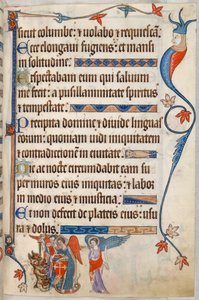 sicut columbe: & uolabo & requiescā.
Ecce elongaui fugiens: et mansi
in solitudine.
Expectabam eum qui saluum
me fecit: a pusillanimitate spiritus
& tempestate.
Precipita domine, diuide linguas
eorum: quoniam uidi iniquitatem
& contradictionem in ciuitate.
Die ac nocte circumdabit eam su
per muros eius iniquitas: & labor
in medio eius & iniusticia.
Et non defecit de plateis eius: usu
ra & dolus.